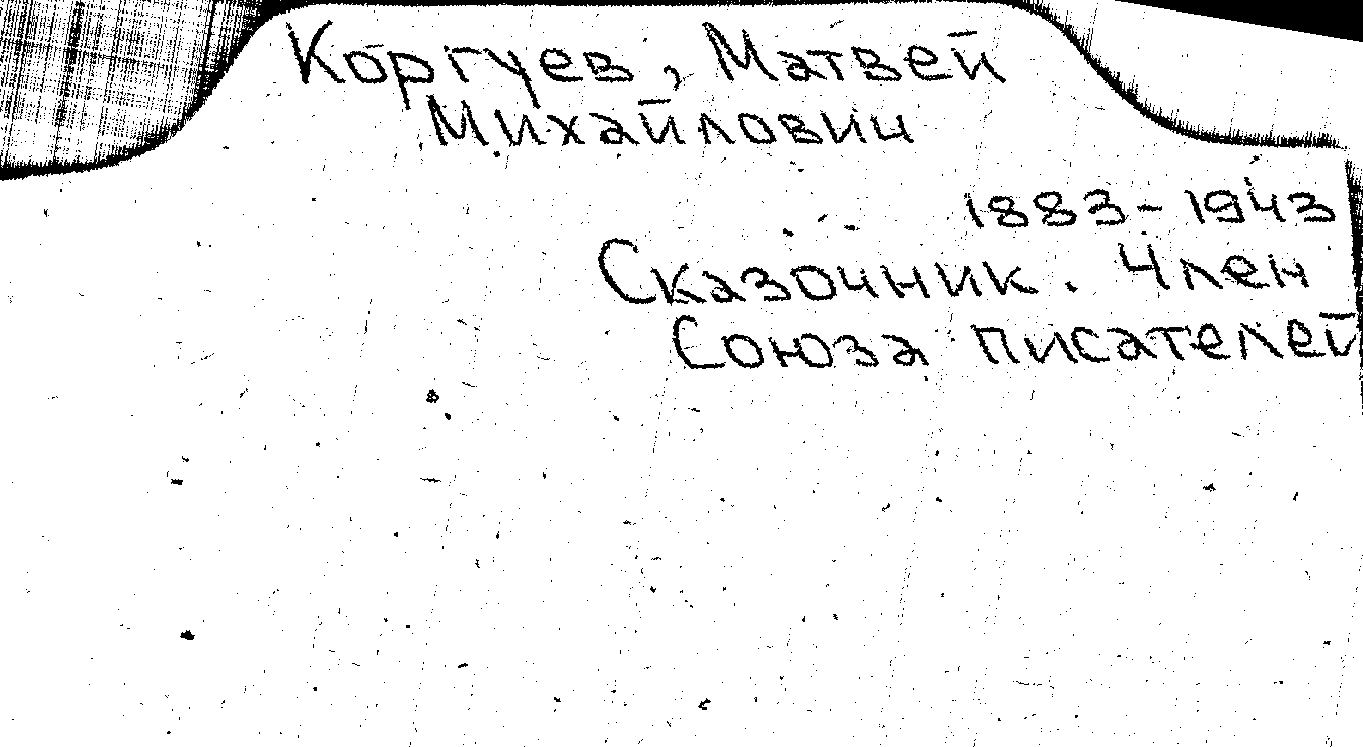 Коргуев, Матвей
Михайлович
1883-1943
Сказочник. Член
Союза писателей